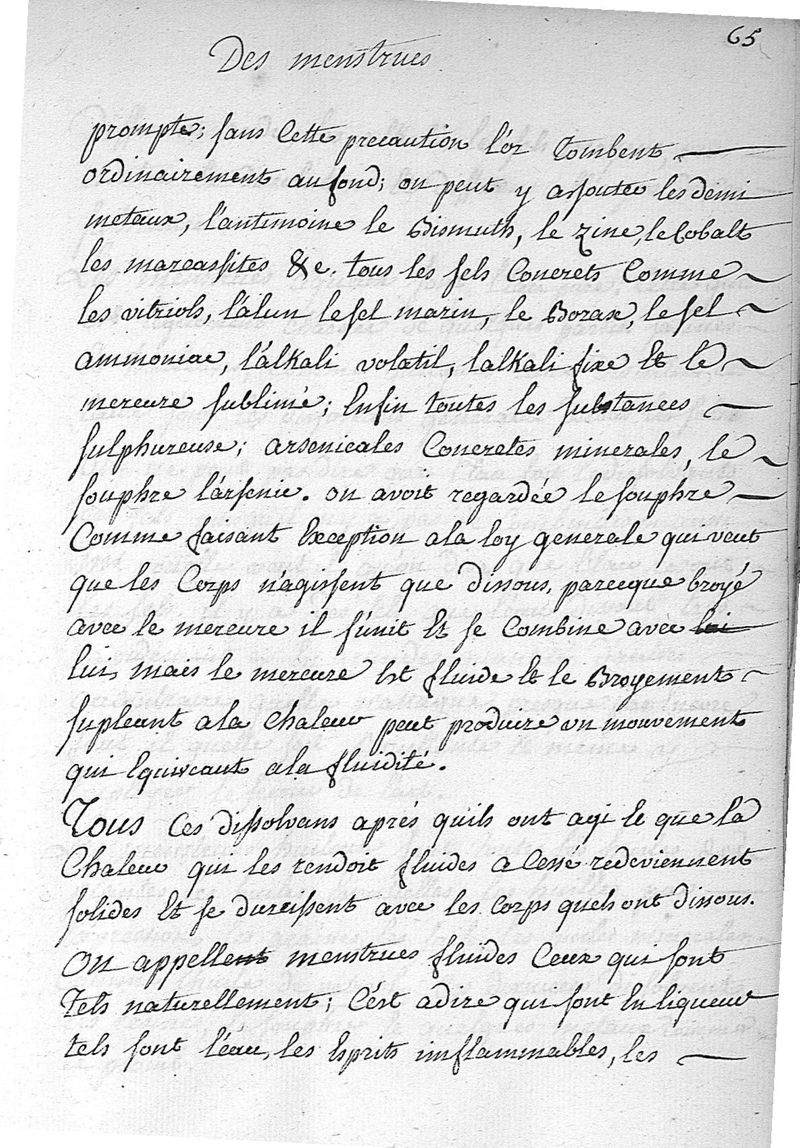 65
Des menstrues
prompte; sans Cette precaution l'or Tombent
ordinairement au fond; on peut y ajouter les demi
metaux, l'antimoine le Bismuth, le zinc, le Cobalt
les marcassites &c. tous les sels Concrets Comme
les vitriols, l'alun le sel marin, le Borax, le sel
ammoniac, l'alkali volatil, lalkali fixe Et le
mercure sublimé; Enfin toutes les substances
sulphureuse; arsenicales Concretes minerales, le
souphre l'arsenic. on avoit regardée le souphre
Comme faisant Exception ala loy generale qui veut
que les Corps n'agissent que dissous, parceque broyé
avec le mercure il s'unit Et se Combine avec lui
lui, mais le mercure Est fluide Et le Broyement
supleant ala Chaleur peut produire un mouvement
qui Equiveaut ala fluidité.
Tous Ces dissolvans aprés qu'ils ont agi Et que la
Chaleur qui les rendoit fluides a Cessé redeviennent
solides Et se durcissent avec les Corps quels ont dissous.
On appellent menstrues fluides Ceux qui sont
Tels naturellement; C'est adire qui sont En liqueur
tels sont l'eau, les Esprits imflammables, les